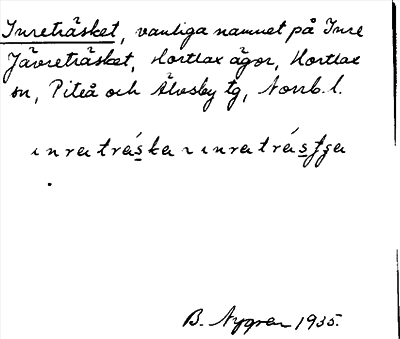 Inreträsket, vanliga namnet på Inre
Jävreträsket, Hortlax ägor, Hortlax
sn, Piteå och Älvsby tg, Norrb. l.
B. Nygren 1935.